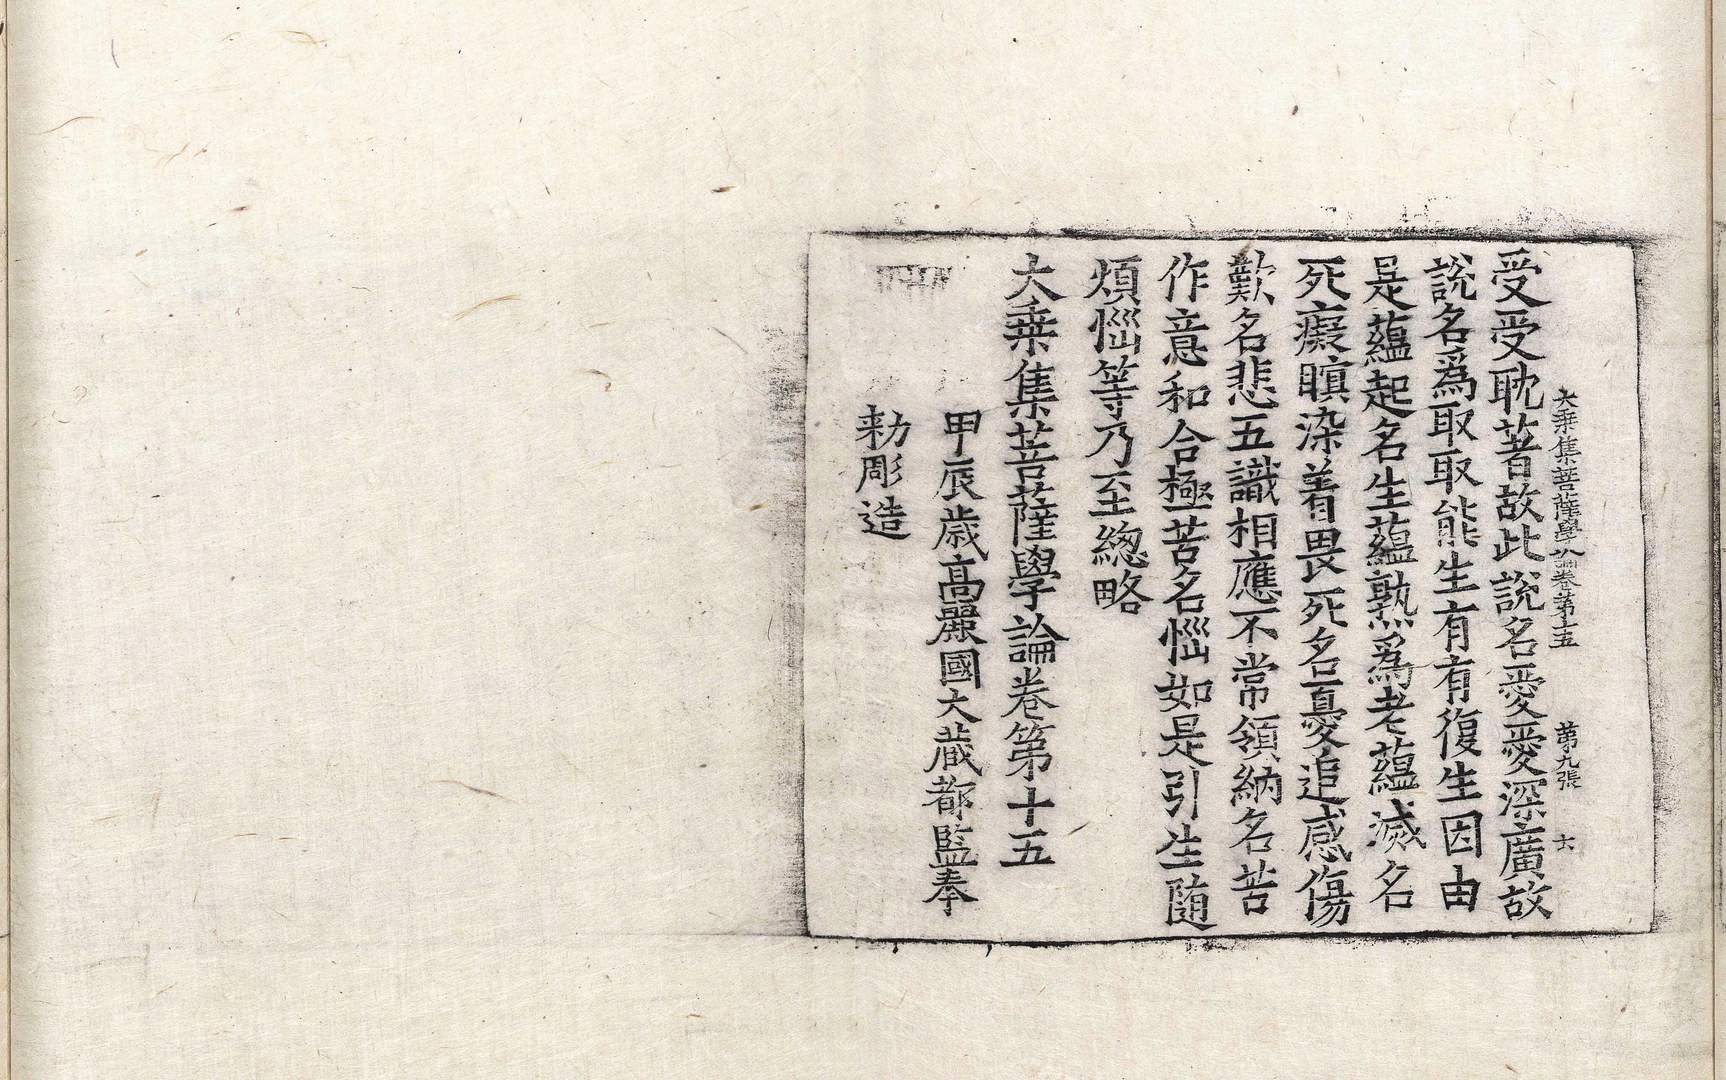 大乗集菩薩學論卷第十五 第九張 六
受受耽著故此說名愛愛深廣故
說名爲取取能生有有復生因由
是蘊起名生蘊熟爲老蘊滅名
死癡瞋染著畏死名憂追感傷
歎名悲五識相應不常領納名苦
作意和合極苦名惱如是引生随
煩惱等乃至緫略
大乗集菩薩學論卷第十五
甲辰歲高麗國大藏都監奉
勑彫造